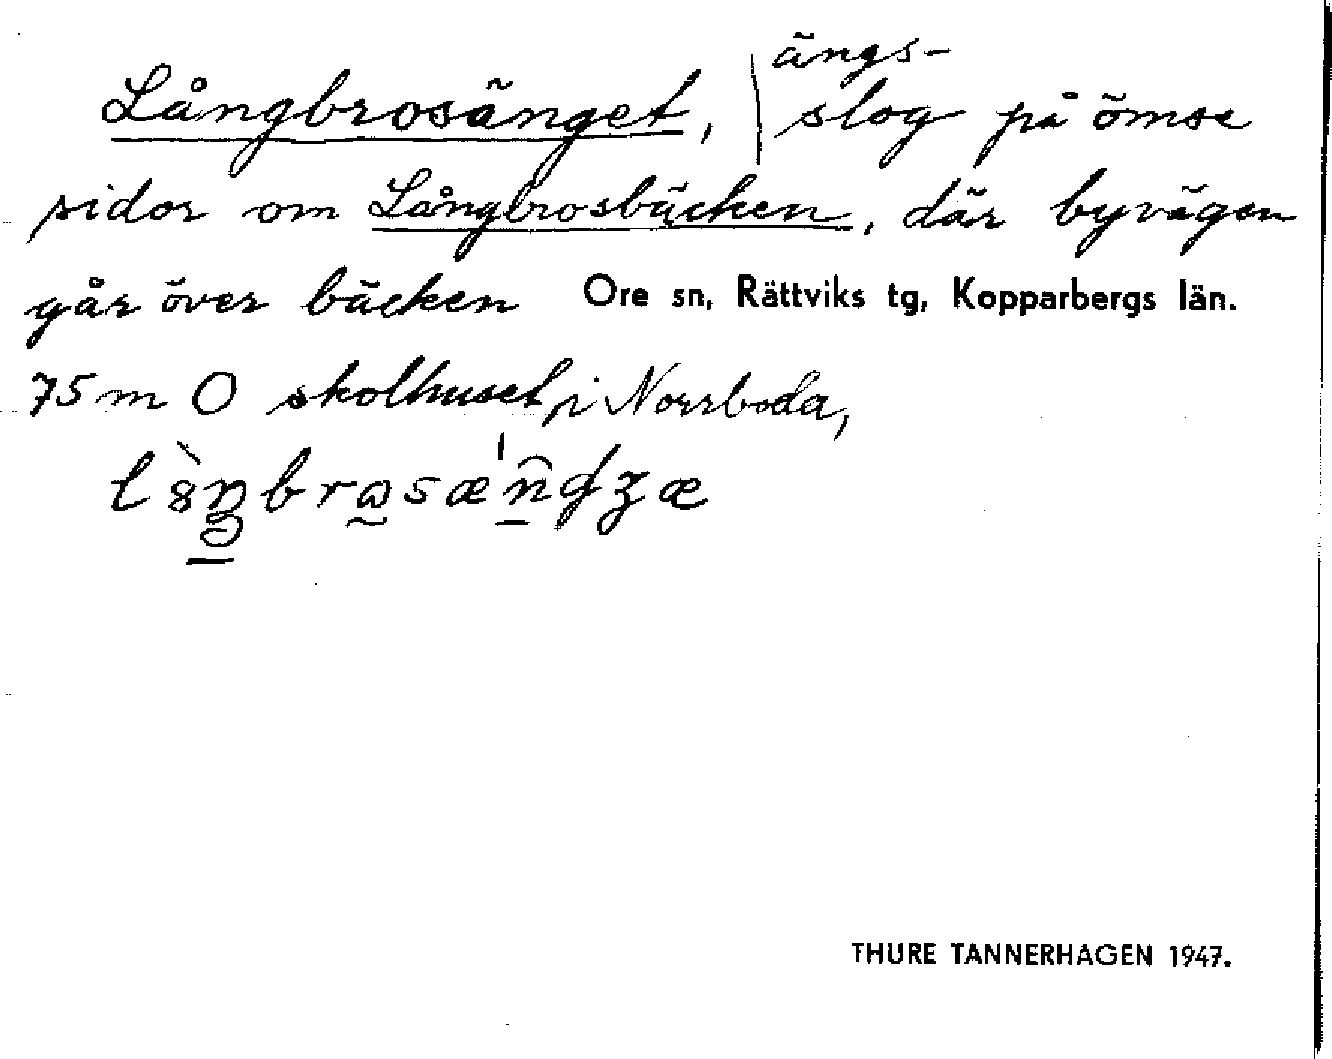 Långbrosänget, ängs-
slog på ömse
sidor om Långbrosbäcken, där byvägen
går över bäcken Ore sn, Rättviks tg, Kopparbergs län.
75 m O skolhuset i Norrboda,
THURE TANNERHAGEN 1947.